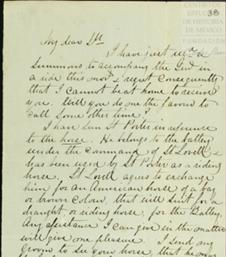 My dear Sir
I have just rec'd a
Summons to accompany the Genl in
a ride this mor'g & regret consequently
that I cannot be at home to receive
you. Will you do me the favor to
call some other time?
I have seen Lt Porter in reference
to the horse. He belongs to the battery
under the command of Lt Lovell, &
has been used by Lt Porter as a riding
horse. Lt Lovell agrees to exchange
him for an American horse of a bay
or brown colour, that will suit for a
draught, or riding horse, for the Battery.
Any assistance I can give in the matter
will give me pleasure. I send my
groom to see your horse, that he may
38
CENTRO DE
ESTUDIOS
DE HISTORIA
DE MEXICO
FUNDACION